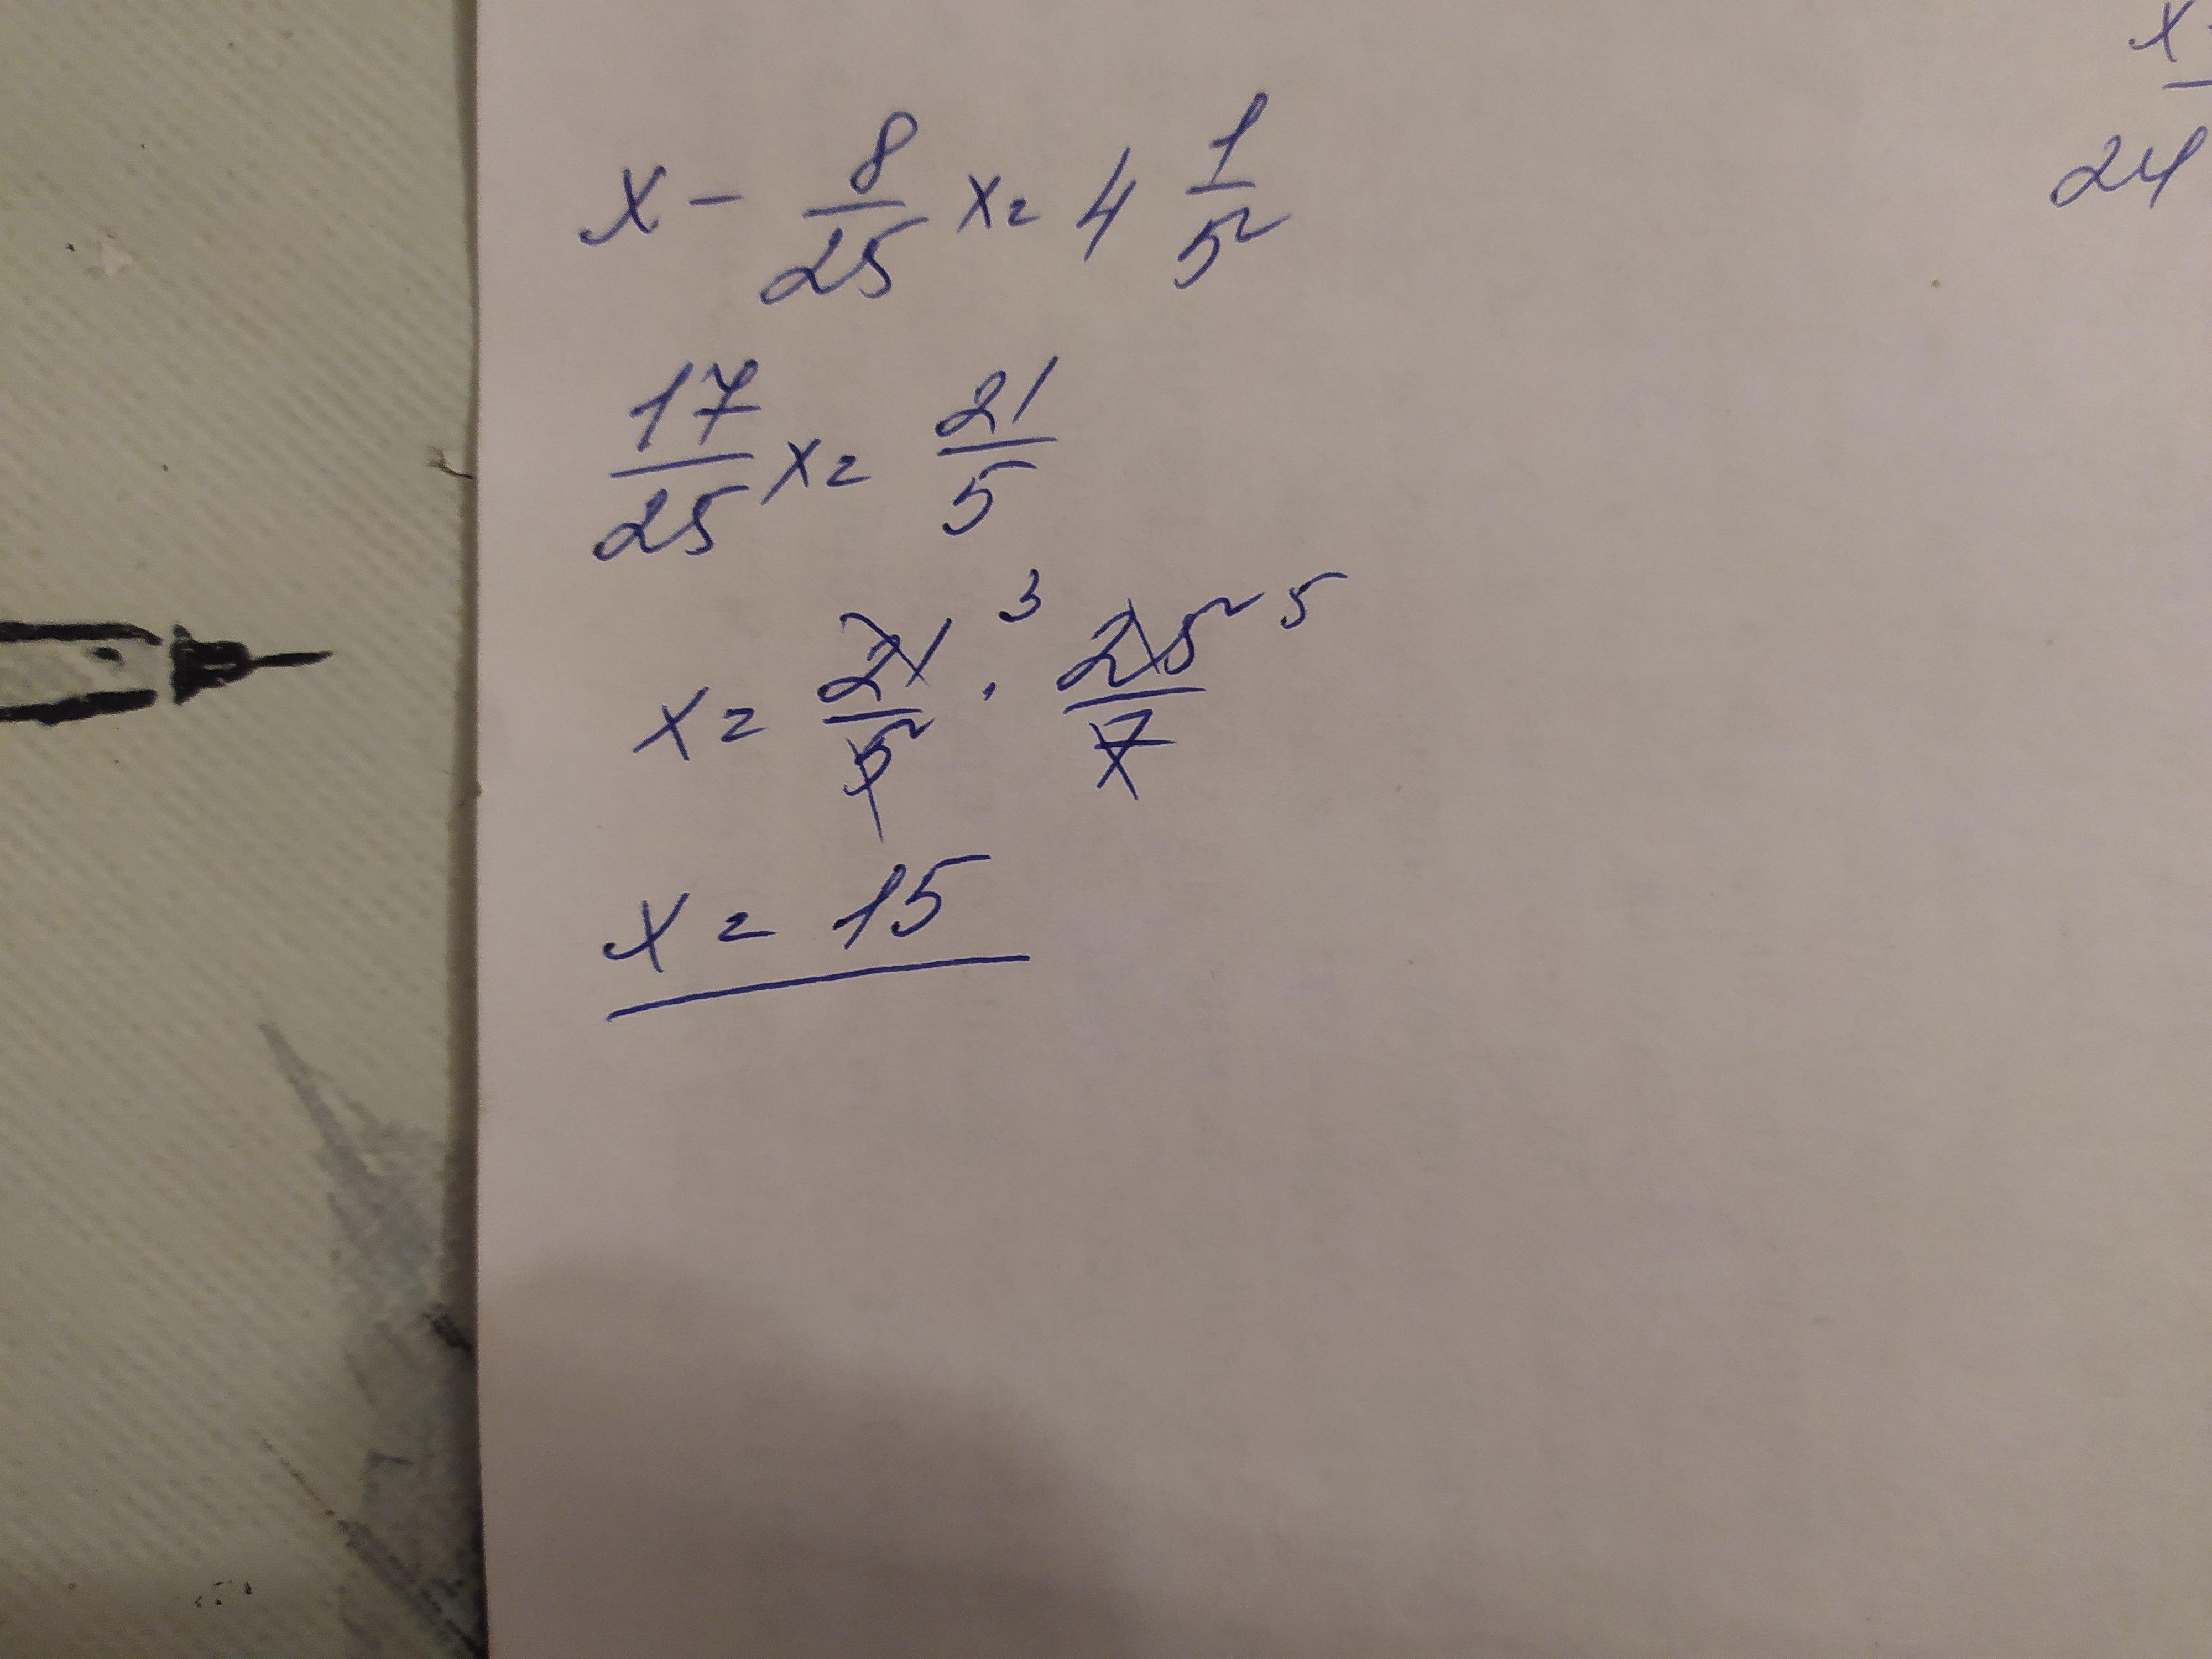 x - 8/25 x = 4 1/5
17/25 x = 21/5
x = 21/5 3 · 25/7 5
x = 15
x
24